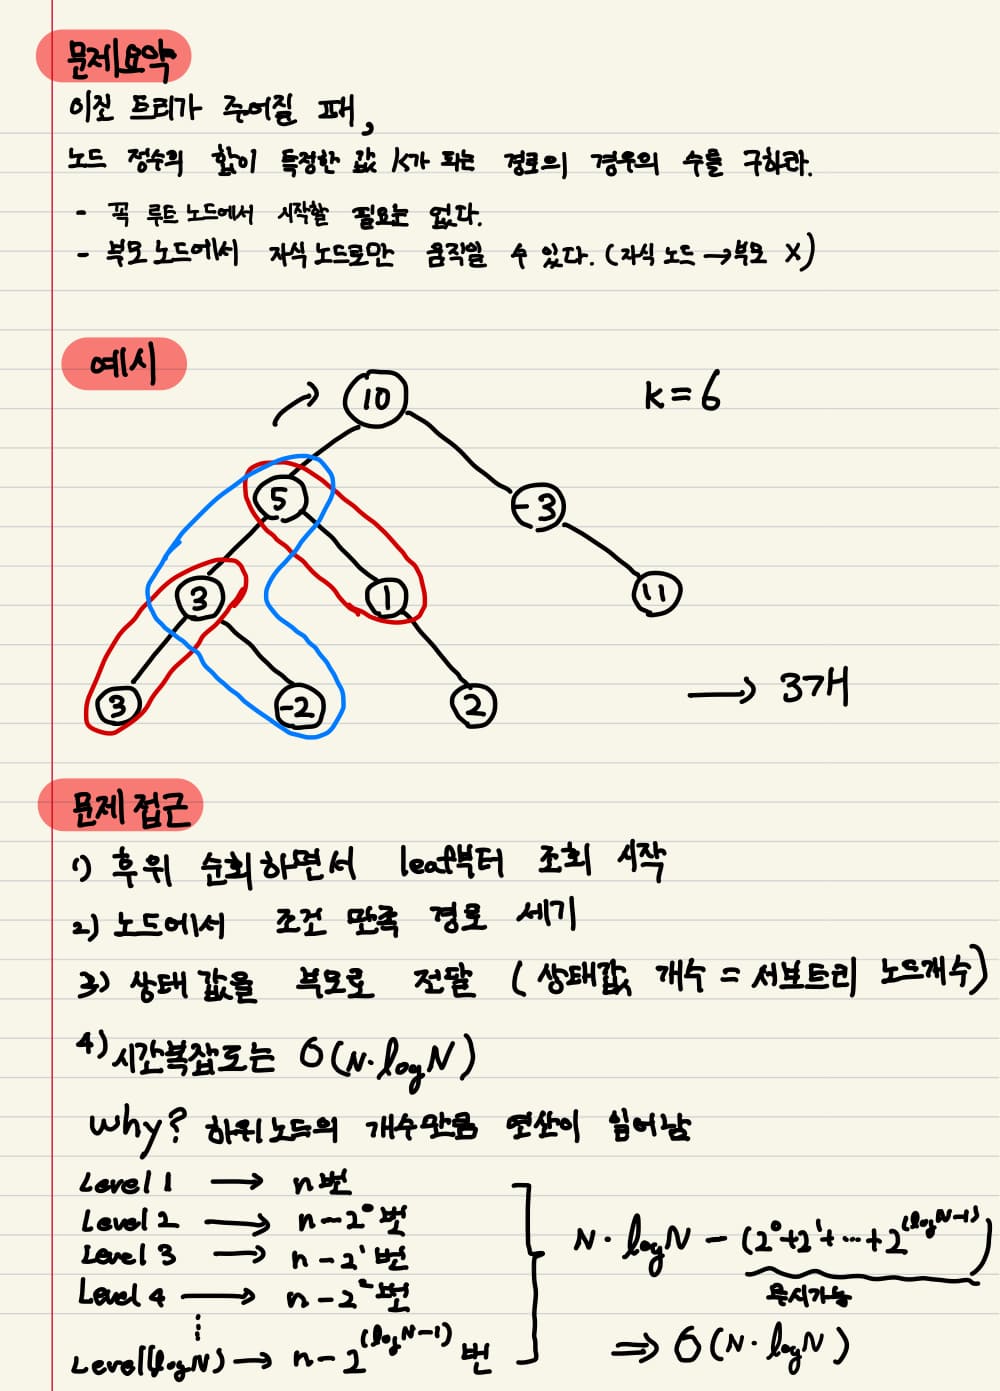 문제요약
이진 트리가 주어질 때,
노드 정수의 합이 특정한 값 k가 되는 경로의 경우의 수를 구하라.
- 꼭 루트 노드에서 시작할 필요는 없다.
- 부모 노드에서 자식 노드로만 움직일 수 있다. (자식 노드 → 부모 X)
예시
10
k = 6
5
-3
3
1
11
3
-2
2
→ 3개
문제 접근
1) 후위 순회하면서 leaf부터 조회 시작
2) 노드에서 조건 만족 경로 세기
3) 상태 값을 부모로 전달 (상태값 개수 = 서브트리 노드개수)
4) 시간복잡도는 O(N·logN)
Why? 하위노드의 개수만큼 연산이 일어남
Level 1 → n번
Level 2 → n-2⁰번
Level 3 → n-2¹번
Level 4 → n-2²번
⋮
Level(logN) → n-2^(logN-1) 번
N·logN - (2⁰+2¹+…+2^(logN-1))
무시가능
⇒ O(N·logN)